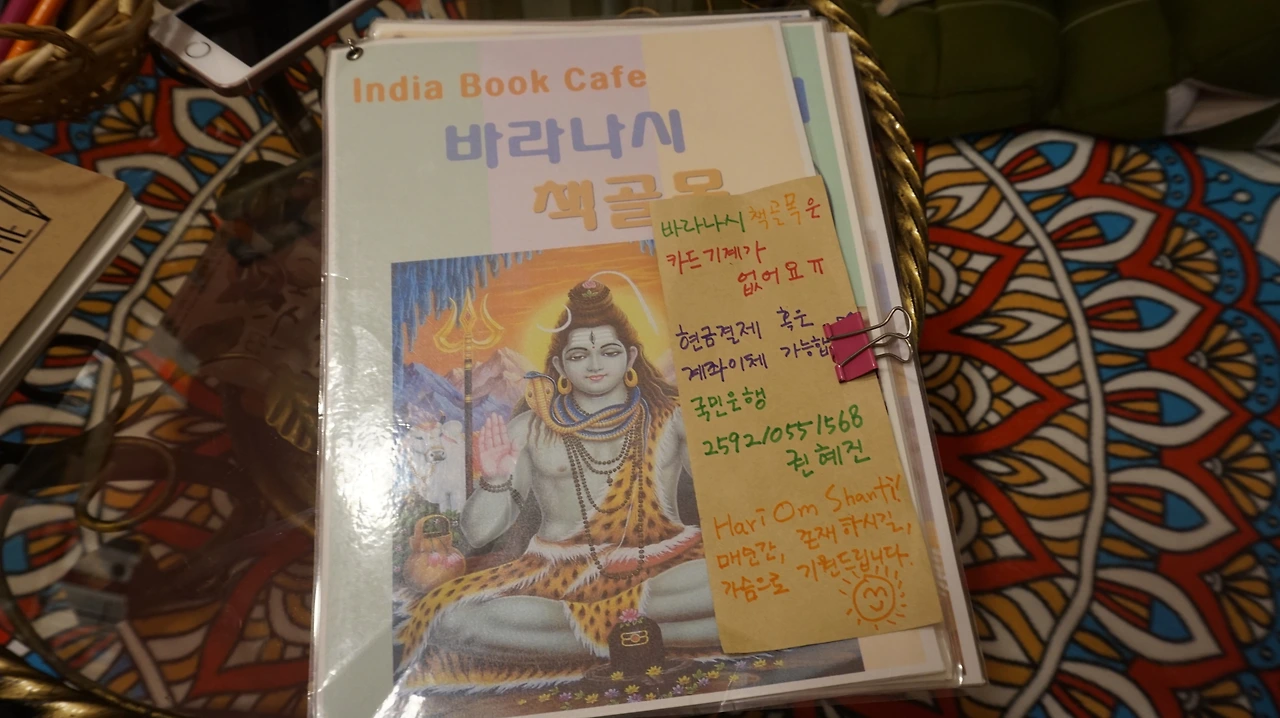 India Book Cafe
바라나시
책골목
바라나시 책골목은
카드기계가
없어요 ㅠ
현금결제 혹은
계좌이체 가능합
국민은행
2592/055/568
권혜진
Hari Om Shanti!
매순간, 존재하시길,
가슴으로 기원드립니다.